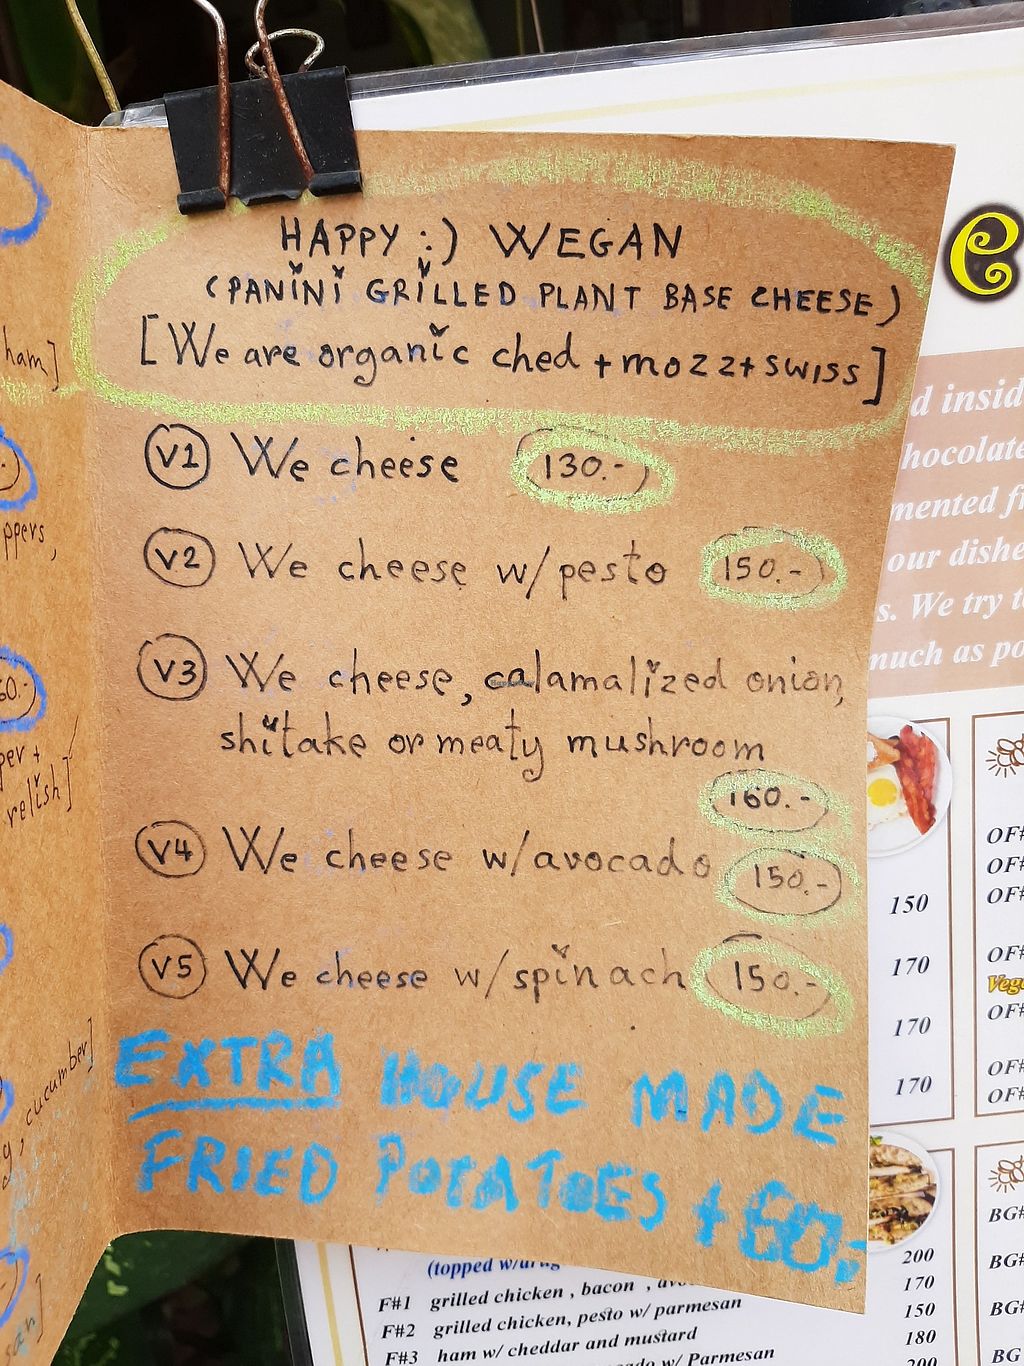 HAPPY :) WEGAN
(PANINI GRILLED PLANT BASE CHEESE)
[We are organic ched + mozz + swiss]
V1 We cheese 130.-
V2 We cheese w/pesto 150.-
V3 We cheese, calamalized onion,
shitake or meaty mushroom
160.-
V4 We cheese w/avocado 150.-
V5 We cheese w/spinach 150.-
EXTRA HOUSE MADE
FRIED POTATOES +60.-
ham]
ppers,
per +
relish]
, cucumber]
e
d insid
hocolate
mented f
our dishe
s. We try t
much as po
150
170
170
170
OF#
OF#
OF#
OF#
Vege
OF#
OF#
OF#
BG#
BG#
BG#
BG
(topped w/
200
F#1 grilled chicken , bacon , avo 170
F#2 grilled chicken, pesto w/ parmesan 150
F#3 ham w/ cheddar and mustard 180
ado w/ Parmesan 200